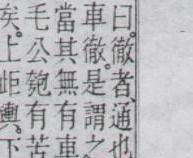 曰。徹者、通也
車徹。是謂之
當其無有車
毛公匏有苦
矣。上歫輿。下